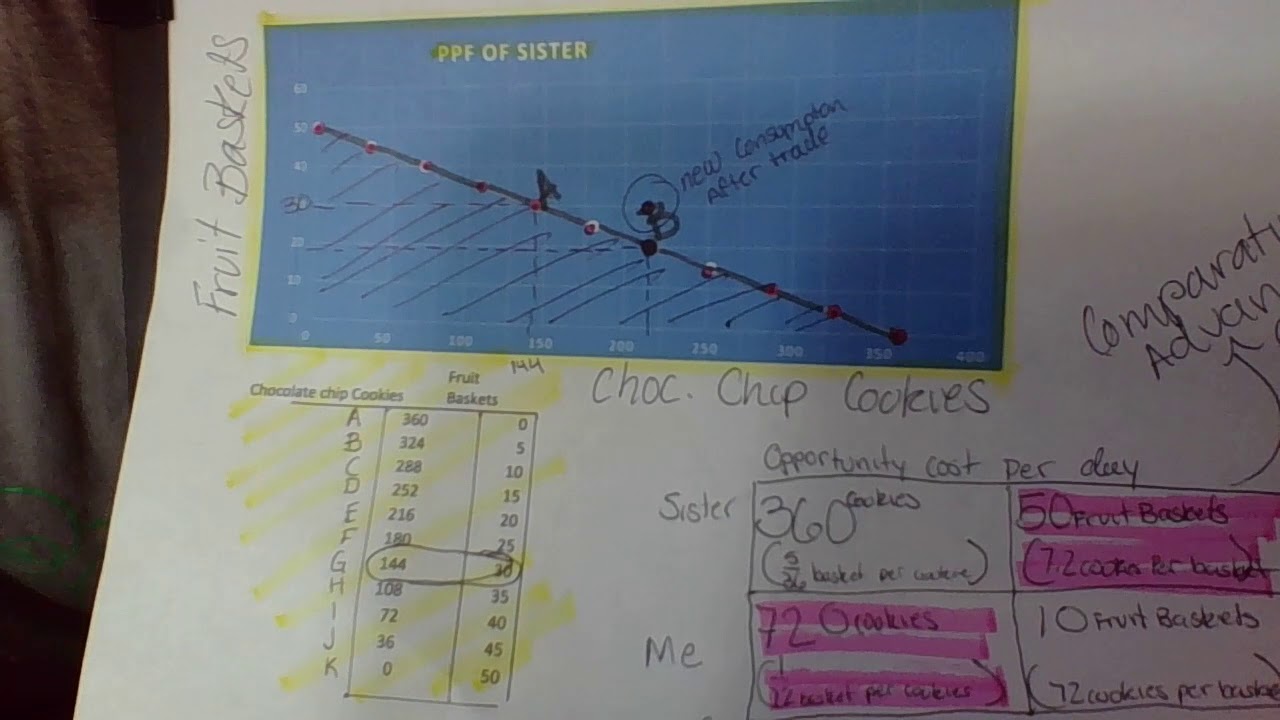 PPF OF SISTER
Fruit Baskets
60
50
40
30
20
10
0
A
B
new consumption
After trade
0 50 100 150 200 250 300 350 400
144
Choc. Chip Cookies
Chocolate chip Cookies Fruit Baskets
A 360 0
B 324 5
C 288 10
D 252 15
E 216 20
F 180 25
G 144 30
H 108 35
I 72 40
J 36 45
K 0 50
Opportunity cost per day
Sister
360 cookies
(5/36 basket per cookie)
50 Fruit Baskets
(7.2 cookies per basket)
Me
720 cookies
basket per cookies)
10 Fruit Baskets
(72 cookies per